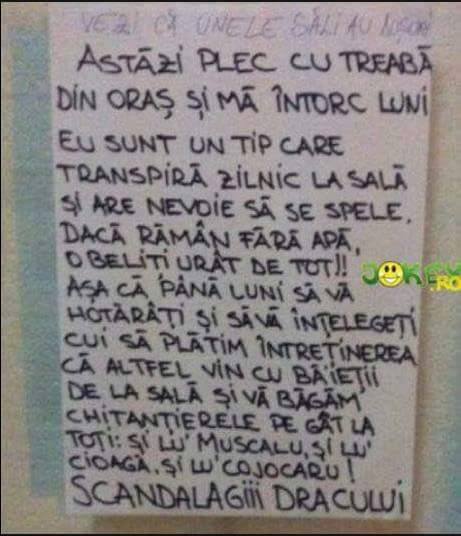 VEZI CĂ UNELE SĂLI AU
ASTĂZI PLEC CU TREABĂ
DIN ORAȘ ȘI MĂ ÎNTORC LUNI
EU SUNT UN TIP CARE
TRANSPIRĂ ZILNIC LA SALĂ
ȘI ARE NEVOIE SĂ SE SPELE.
DACĂ RĂMÂN FĂRĂ APĂ,
O BELIȚI URÂT DE TOT!!
JOKEY.RO
AȘA CĂ, PÂNĂ LUNI SĂ VĂ
HOTĂRÂȚI ȘI SĂ VĂ ÎNȚELEGEȚI
CUI SĂ PLĂTIM ÎNTREȚINEREA
CĂ ALTFEL VIN CU BĂIEȚII
DE LA SALĂ ȘI VĂ BĂGĂM
CHITANȚIERELE PE GÂT LA
TOȚI: ȘI LU' MUSCALU, ȘI LU'
CIOAGĂ, ȘI LU' COJOCARU!
SCANDALAGIII DRACULUI